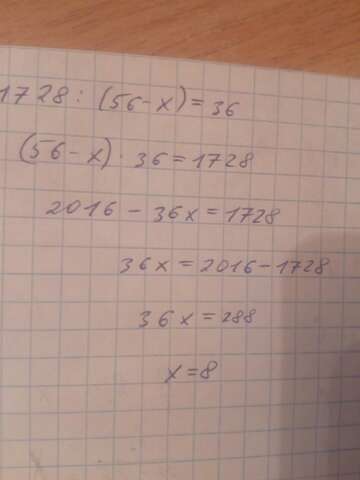 1728 : (56-x) = 36
(56-x) · 36 = 1728
2016 - 36x = 1728
36x = 2016-1728
36x = 288
x = 8